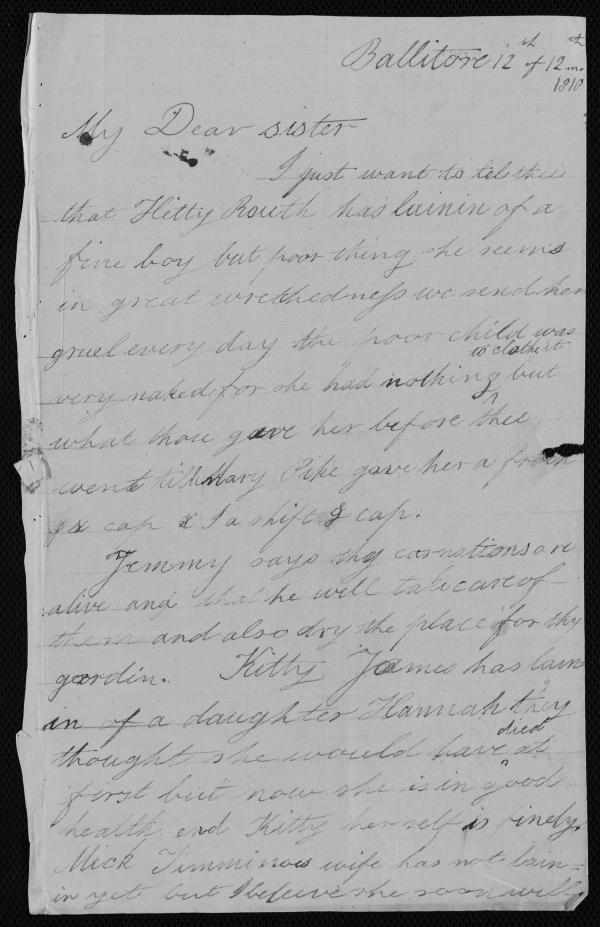 Ballitore 12th of 12th mo
1810
My Dear sister
I just want to tel thee
that Hitty Routh has lainin of a
fine boy but poor thing she seems
in great wrethedness we send her
gruel every day the poor child was
very naked for she had nothing to clothe it but
what thou gave her before thee
went till Mary Pike gave her a frock
& a cap & I a shift & cap.
Jemmy says thy carnations are
alive and that he will take care of
them and also dry the place for thy
gardin. Kitty James has lain
in of a daughter Hannah they
thought she would have died at
first but now she is in good
health and Kitty herself is finely
Mick Timmins wife has not lain=
in yet but I beleive she soon will